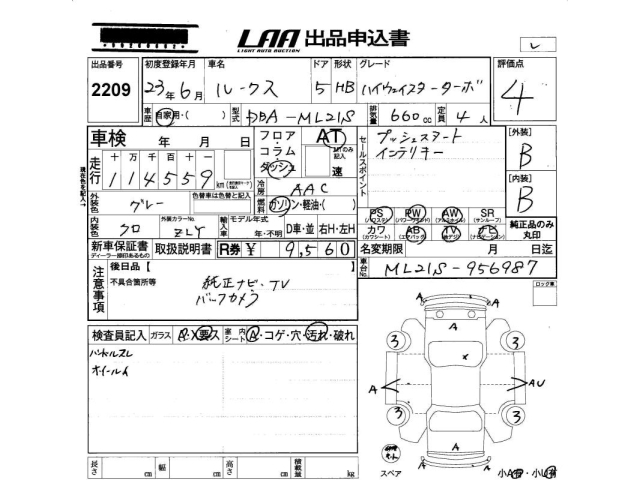 LAA 出品申込書
LIGHT AUTO AUCTION
出品番号 初度登録年月 車名 ドア 形状 グレード 評価点
2209 23年6月 ルークス 5 HB ハイウェイスターターボ 4
車歴 自家用・( ) 型式 DBA-ML21S 排気量 660cc 定員 4人
車検 年 月 日 フロア・コラム・ダッシュ AT 速 セールスポイント プッシュスタート 【外装】
インテリキー B
走行 十 万 千 百 十 一
114559 km 冷房 AAC 【内装】
外装色 グレー 色替車は色替と記入 燃料 ガソリン・軽油・( ) B
PS PW AW SR
(パワステ) (パワーウインド) (アルミホイル) (サンルーフ) 純正品のみ丸印
内装色 クロ 外装カラーNo. ZLY 輸入車 モデル年式 年・不明 D車・並 右H・左H カワ AB TV ナビ
(カワシート) (エアバッグ)
新車保証書 取扱説明書 R券 ¥ 9,560 名変期限 月 日迄
ディーラー捺印あるもの
車台No. ML21S-956987
注意事項 後日品【 】
不具合箇所等 純正ナビ・TV
バックカメラ
ロック車
検査員記入 ガラス A・X要ス 室内シート A・コゲ・穴・汚れ・破れ
ハンドルスレ
ホイールA
A
A
3 3
X
A AU
3 3
A
A
スペア
長さ cm 幅 cm 高さ cm 積載量 kg